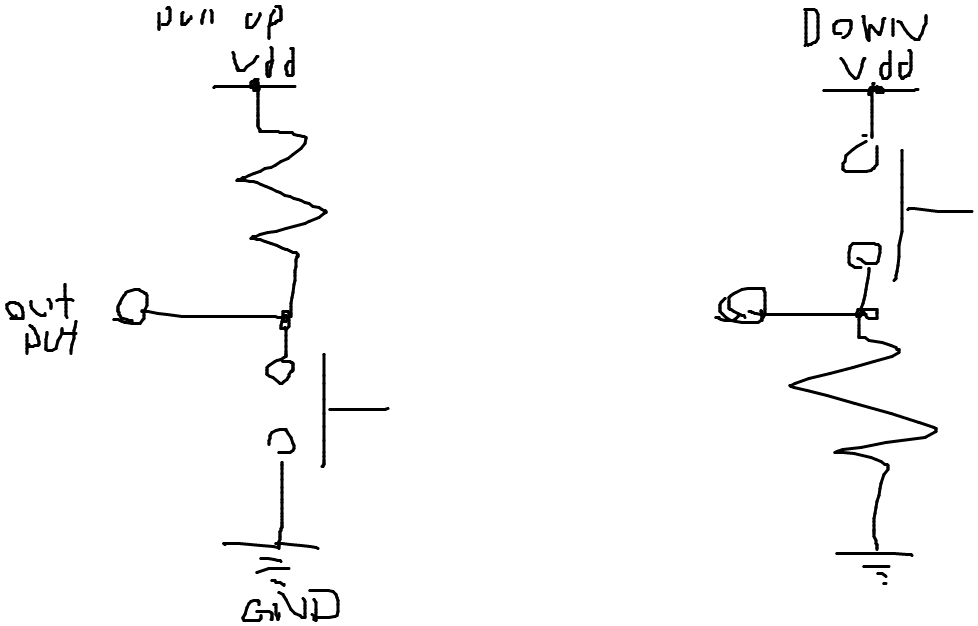 pull up
Vdd
out
put
GND
DOWN
Vdd